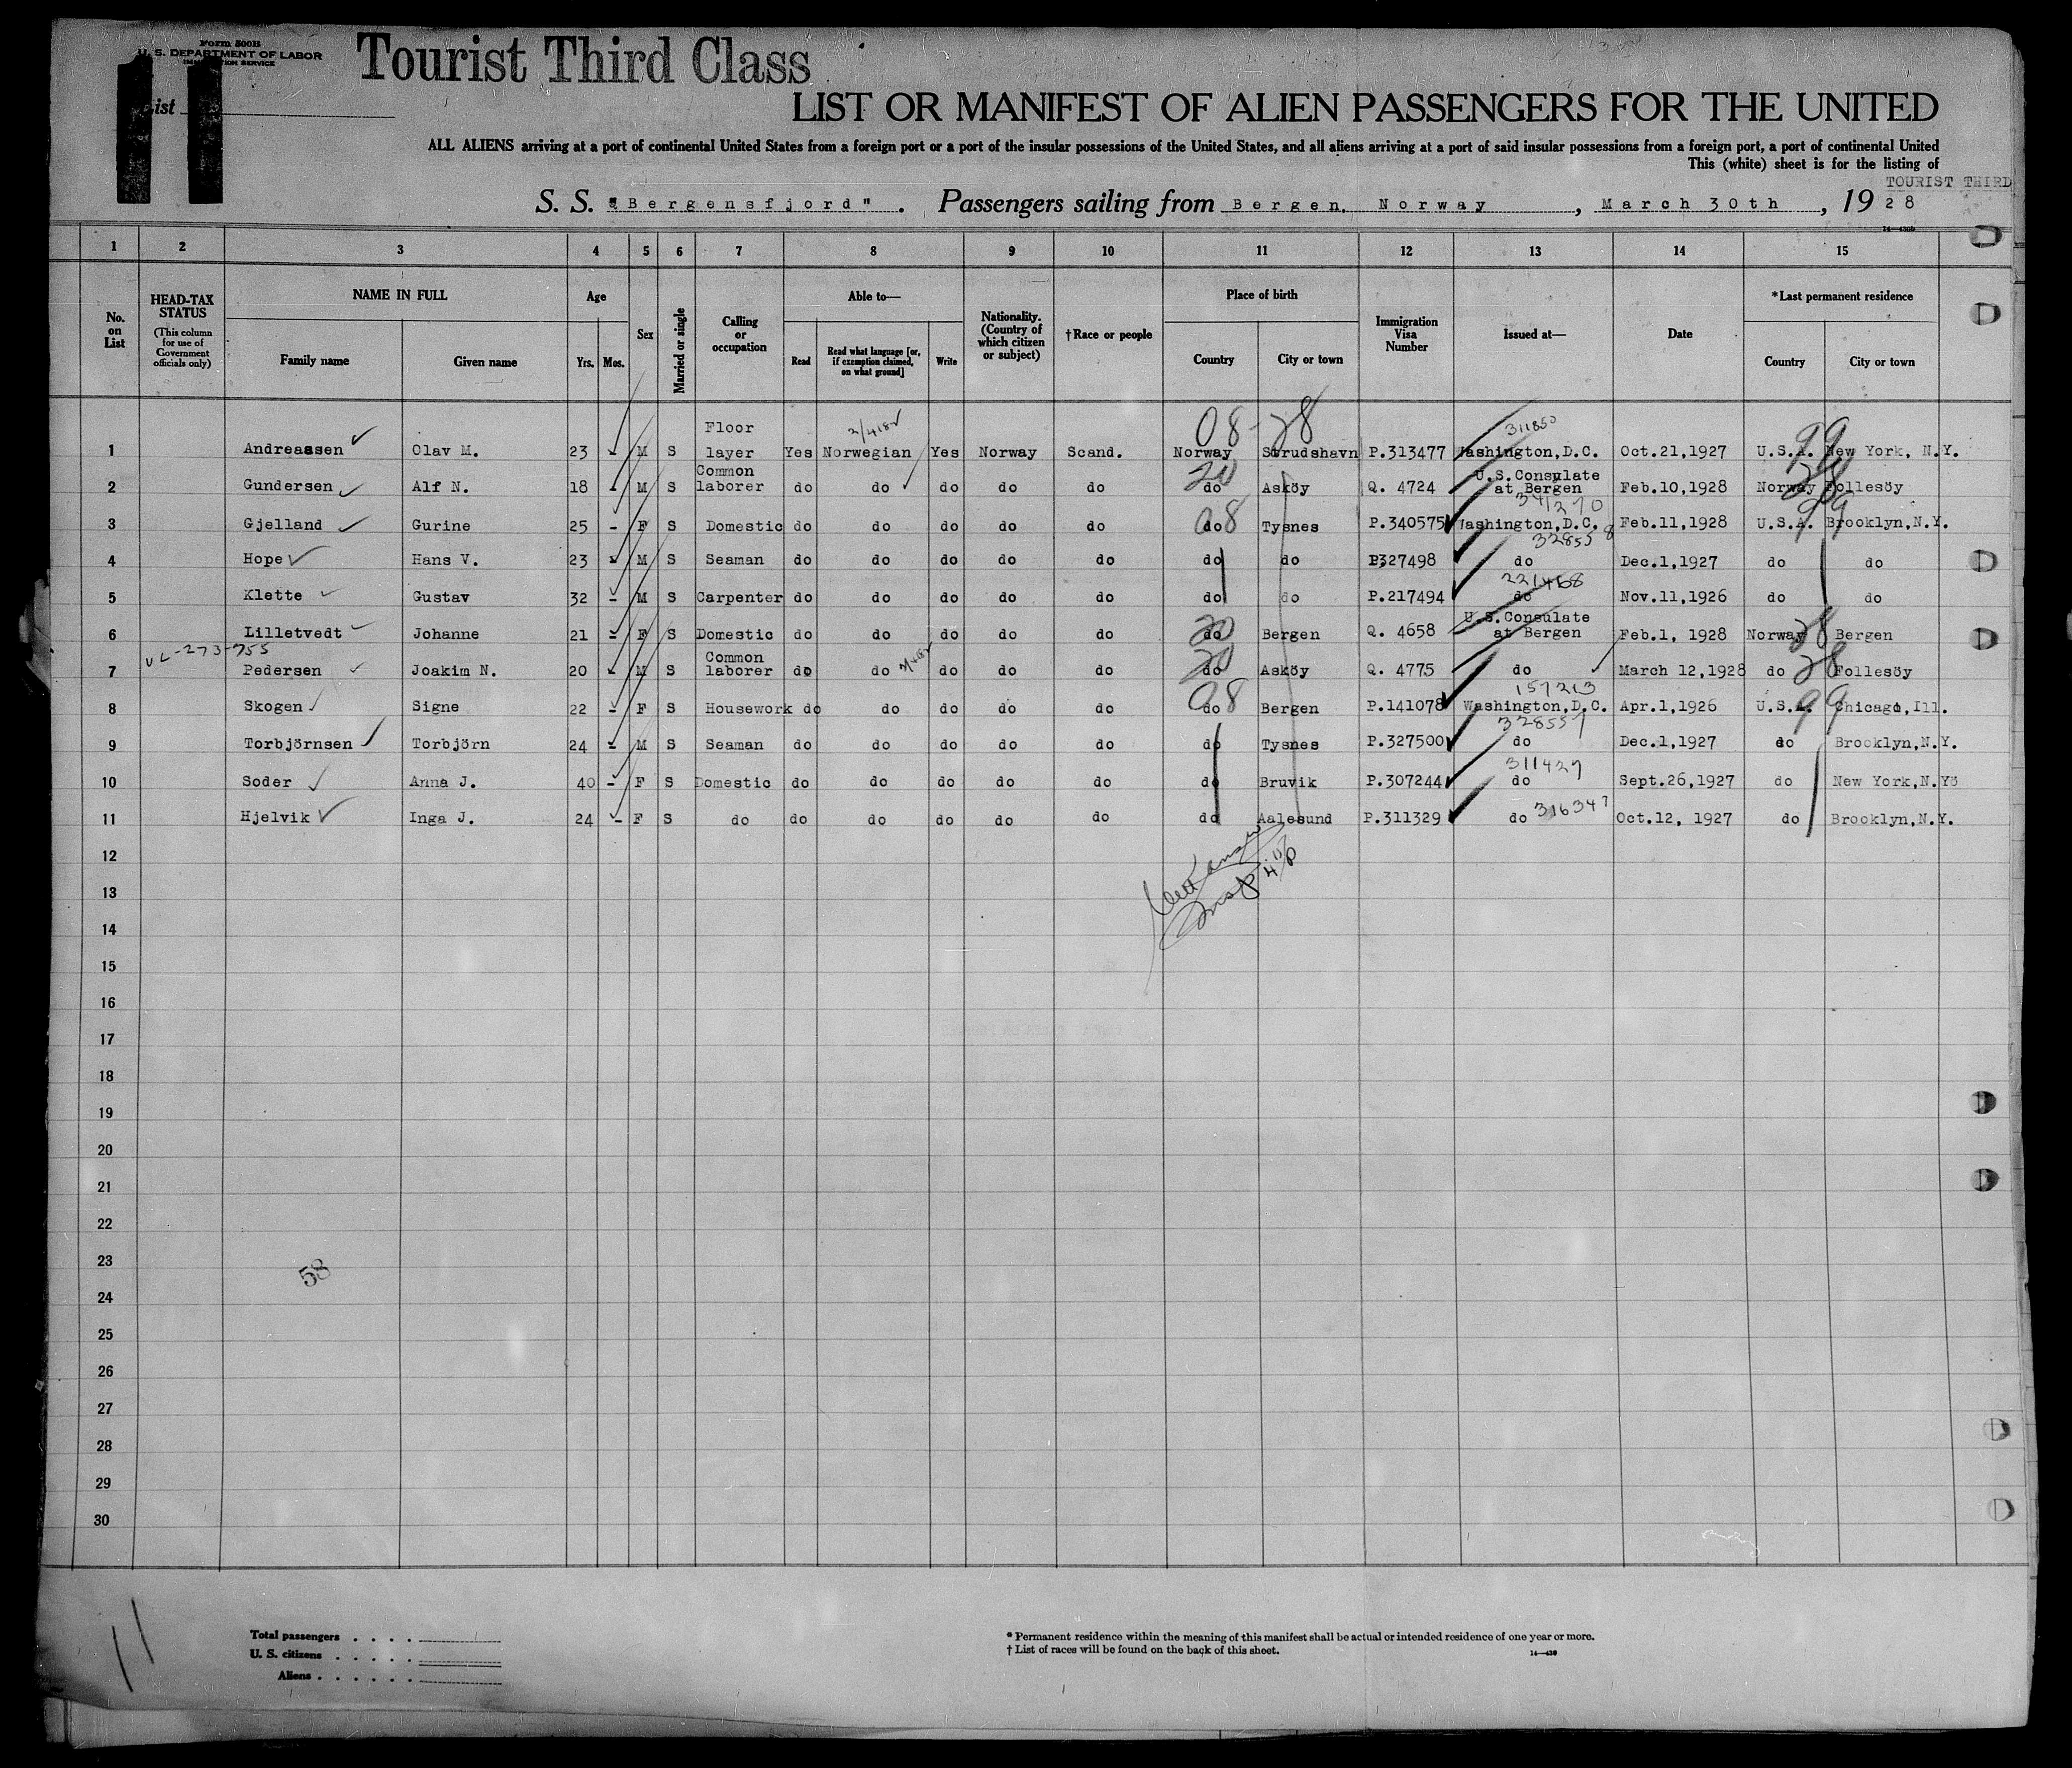 Form 500B
U. S. DEPARTMENT OF LABOR
Tourist Third Class
LIST OR MANIFEST OF ALIEN PASSENGERS FOR THE UNITED
ALL ALIENS arriving at a port of continental United States from a foreign port or a port of the insular possessions of the United States, and all aliens arriving at a port of said insular possessions from a foreign port, a port of continental United
This (white) sheet is for the listing of
TOURIST THIRD
S. S. "Bergensfjord" . Passengers sailing from Bergen, Norway , March 30th , 19 28
1 2 3 4 5 6 7 8 9 10 11 12 13 14 15
No. on List
HEAD-TAX STATUS (This column for use of Government officials only)
NAME IN FULL Family name Given name
Age Yrs. Mos.
Sex
Married or single
Calling or occupation
Able to— Read Read what language [or, if exemption claimed, on what ground] Write
Nationality. (Country of which citizen or subject)
†Race or people
Place of birth Country City or town
Immigration Visa Number
Issued at—
Date
*Last permanent residence Country City or town
08-28 311850 99
1 Andreassen Olav M. 23 - M S Floor layer Yes Norwegian Yes Norway Scand. Norway Strudshavn P.313477 Washington,D.C. Oct.21,1927 U.S.A. New York, N.Y.
20 28
2 Gundersen Alf N. 18 - M S Common laborer do do do do do do Asköy Q. 4724 U.S.Consulate at Bergen Feb.10,1928 Norway Follesöy
08 341270 99
3 Gjelland Gurine 25 - F S Domestic do do do do do do Tysnes P.340575 Washington,D.C. Feb.11,1928 U.S.A. Brooklyn,N.Y.
328558
4 Hope Hans V. 23 - M S Seaman do do do do do do do P327498 do Dec.1,1927 do do
221468
5 Klette Gustav 32 - M S Carpenter do do do do do do do P.217494 do Nov.11,1926 do do
20 28
6 Lilletvedt Johanne 21 - F S Domestic do do do do do do Bergen Q. 4658 U.S.Consulate at Bergen Feb.1, 1928 Norway Bergen
273-755 20 28
7 Pedersen Joakim N. 20 - M S Common laborer do do do do do do Asköy Q. 4775 do March 12,1928 do Follesöy
08 157213 99
8 Skogen Signe 22 - F S Housework do do do do do do Bergen P.141078 Washington,D.C. Apr.1,1926 U.S.A. Chicago,Ill.
328557
9 Torbjörnsen Torbjörn 24 - M S Seaman do do do do do do Tysnes P.327500 do Dec.1,1927 do Brooklyn,N.Y.
311427
10 Soder Anna J. 40 - F S Domestic do do do do do do Bruvik P.307244 do Sept.26,1927 do New York,N.Y
316347
11 Hjelvik Inga J. 24 - F S do do do do do do do Aalesund P.311329 do Oct.12, 1927 do Brooklyn,N.Y.
12
13
14
15
16
17
18
19
20
21
22
23
58
24
25
26
27
28
29
30
11
Total passengers
U. S. citizens
Aliens
* Permanent residence within the meaning of this manifest shall be actual or intended residence of one year or more.
† List of races will be found on the back of this sheet.
14—430